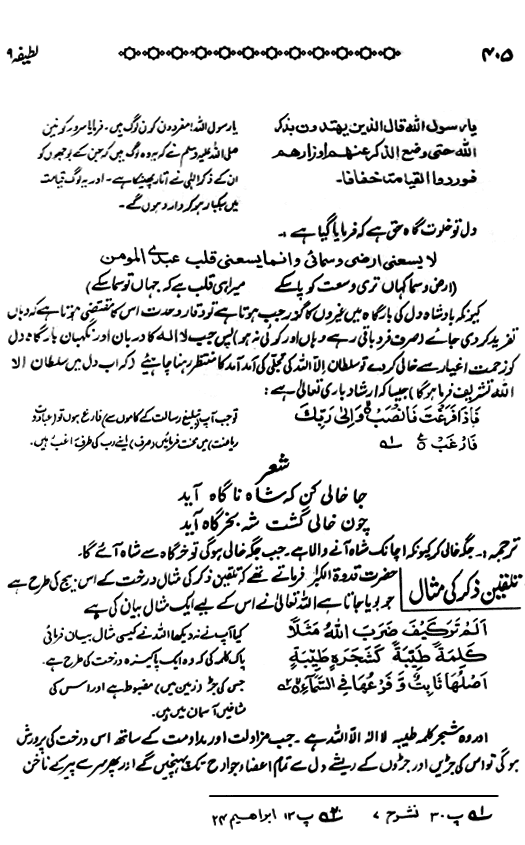 ۴۰۵
لطیفہ ۹
یا رسول اللہ قال الذین یھتدون بذکر
اللہ حتی وضع الذکر عنھم اوزارھم
فوردوا القیامۃ خفافا۔
یا رسول اللہ! مفردون کون لوگ ہیں۔ فرمایا سرور کونین
صلی اللہ علیہ وسلم نے کہ یہ وہ لوگ ہیں کہ جن کے بوجھوں کو
ان کے ذکر الٰہی نے اتار پھینکا ہے۔ اور یہ لوگ قیامت
میں سبکبار ہو کر وارد ہوں گے۔
دل تو خلوت گاہ حق ہے کہ فرمایا گیا ہے :۔
لا یسعنی ارضی وسمائی وانما یسعنی قلب عبدی المومن
(ارض و سما کہاں تری وسعت کو پاسکے میرا ہی قلب ہے کہ جہاں تو سما سکے)
کیونکہ بادشاہ دل کی بارگاہ میں غیروں کا گزر جب ہوتا ہے تو وقار وحدت اس کا مقتضی ہوتا ہے کہ وہاں
تفرید کر دی جائے (صرف فرد باقی رہے وہاں اور کوئی نہ ہو) پس جب لا الہ کا دربان اور نگہبان بارگاہ دل
کو زحمت اغیار سے خالی کر دے تو سلطان الا اللہ کی تجلی کی آمد آمد کا منتظر رہنا چاہیئے (کہ اب دل میں سلطان الا
اللہ تشریف فرما ہو گا) جیسا کہ ارشاد باری تعالیٰ ہے :
فَاِذَا فَرَغْتَ فَانْصَبْ ۙ وَاِلٰى رَبِّكَ
فَارْغَبْ ۱؎
تو جب آپ (تبلیغ رسالت کے کاموں سے) فارغ ہوں تو (عبادت و
ریاضت) میں محنت فرمائیں (صرف) اپنے رب کی طرف راغب ہیں۔
شعر
جا خالی کن کہ شاہ ناگاہ آید
چون خالی گشت شہ بخرگاہ آید
ترجمہ :۔ جگہ خالی کر کیونکہ اچانک شاہ آنے والا ہے۔ جب جگہ خالی ہو گی تو خرگاہ سے شاہ آئے گا۔
تلقین ذکر کی مثال
حضرت قدوۃ الکبرٰ فرماتے تھے کہ تلقین ذکر کی مثال درخت کے اس بیج کی طرح ہے
جو بویا جاتا ہے اللہ تعالیٰ نے اس کے لیے ایک مثال بیان کی ہے
اَلَمْ تَرَ كَيْفَ ضَرَبَ اللهُ مَثَلًا
كَلِمَةً طَيِّبَةً كَشَجَرَةٍ طَيِّبَةٍ
اَصْلُهَا ثَابِتٌ وَّ فَرْعُهَا فِى السَّمَآءِ ۲؎
کیا آپ نے نہ دیکھا اللہ نے کیسی مثال بیان فرمائی
پاک کلمہ کی کہ وہ ایک پاکیزہ درخت کی طرح ہے۔
جس کی جڑ (زمین میں) مضبوط ہے اور اس کی
شاخیں آسمان میں ہیں۔
اور وہ شجر کلمہ طیبہ لا الہ الا اللہ ہے۔ جب مزاولت اور مداومت کے ساتھ اس درخت کی پرورش
ہو گی تو اس کی جڑیں اور جڑوں کے ریشے دل سے تمام اعضاء و جوارح تک پہنچیں گے اور پھر سر سے پیر کے ناخن
۱؎ پ ۳۰ نشرح ۷ ۲؎ پ ۱۳ ابراھیم ۲۴